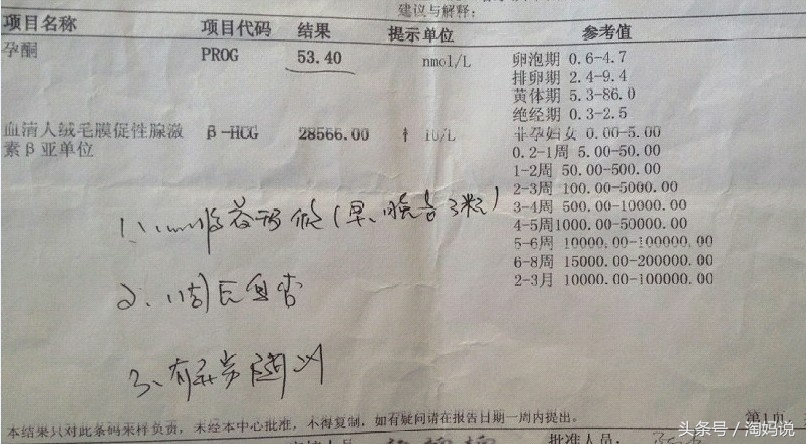 建议与解释:
项目名称 项目代码 结果 提示 单位 参考值
孕酮 PROG 53.40 nmol/L 卵泡期 0.6-4.7
排卵期 2.4-9.4
黄体期 5.3-86.0
绝经期 0.3-2.5
血清人绒毛膜促性腺激 β-HCG 28566.00 ↑ IU/L 非孕妇女 0.00-5.00
素β亚单位 0.2-1周 5.00-50.00
1-2周 50.00-500.00
2-3周 100.00-5000.00
3-4周 500.00-10000.00
4-5周1000.00-50000.00
5-6周 10000.00-100000.00
6-8周 15000.00-200000.00
2-3月 10000.00-100000.00
1、(早、晚各3粒)
2、1周后复查
3、有异常随诊
本结果只对此条码来样负责,未经本中心批准,不得复制.如有疑问请在报告日期一周内提出. 第1页
批准人员:
头条号/淘妈说